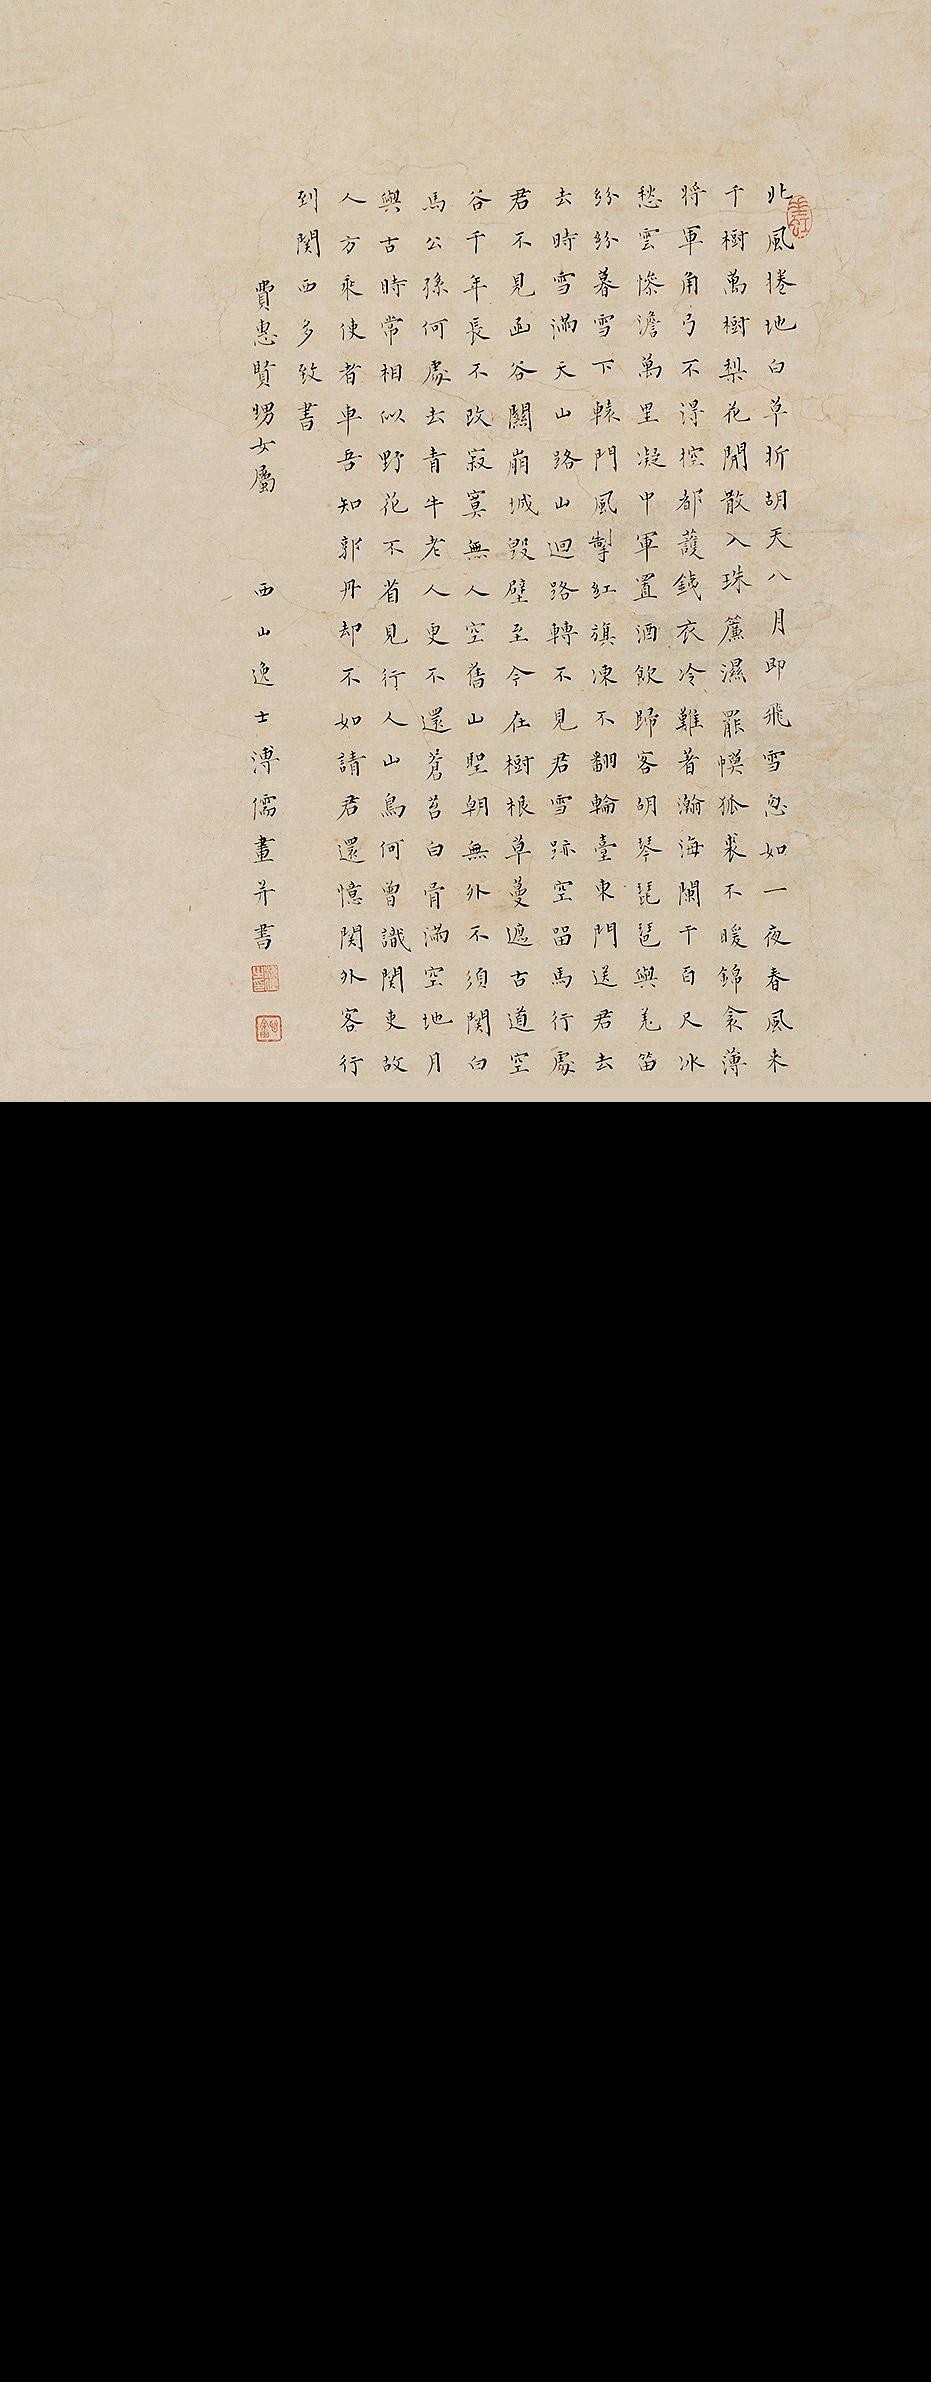 北風捲地白草折胡天八月即飛雪忽如一夜春風来
千樹萬樹梨花開散入珠簾濕羅幙狐裘不暖錦衾薄
将軍角弓不得控都護銕衣冷難著瀚海闌干百尺冰
愁雲慘澹萬里凝中軍置酒飲歸客胡琴琵琶與羌笛
紛紛暮雪下轅門風掣紅旗凍不翻輪臺東門送君去
去時雪滿天山路山迴路轉不見君雪跡空留馬行處
君不見函谷關崩城毀壁至今在樹根草蔓遮古道空
谷千年長不改寂寞無人空舊山聖朝無外不須関白
馬公孫何處去青牛老人更不還蒼苔白骨滿空地月
與古時常相似野花不省見行人山鳥何曾識関吏故
人方乘使者車吾知郭丹却不如請君還憶関外客行
到関西多致書
費惠賢甥女屬 西山逸士溥儒畫并書